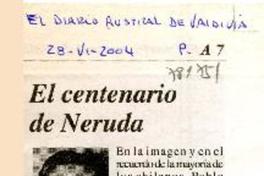 EL DIARIO AUSTRAL DE VALDIVIA
28-VI-2004 P. A7
El centenario
de Neruda
En la imagen y en el
recuerdo de la mayoría de
los chilenos, Pablo